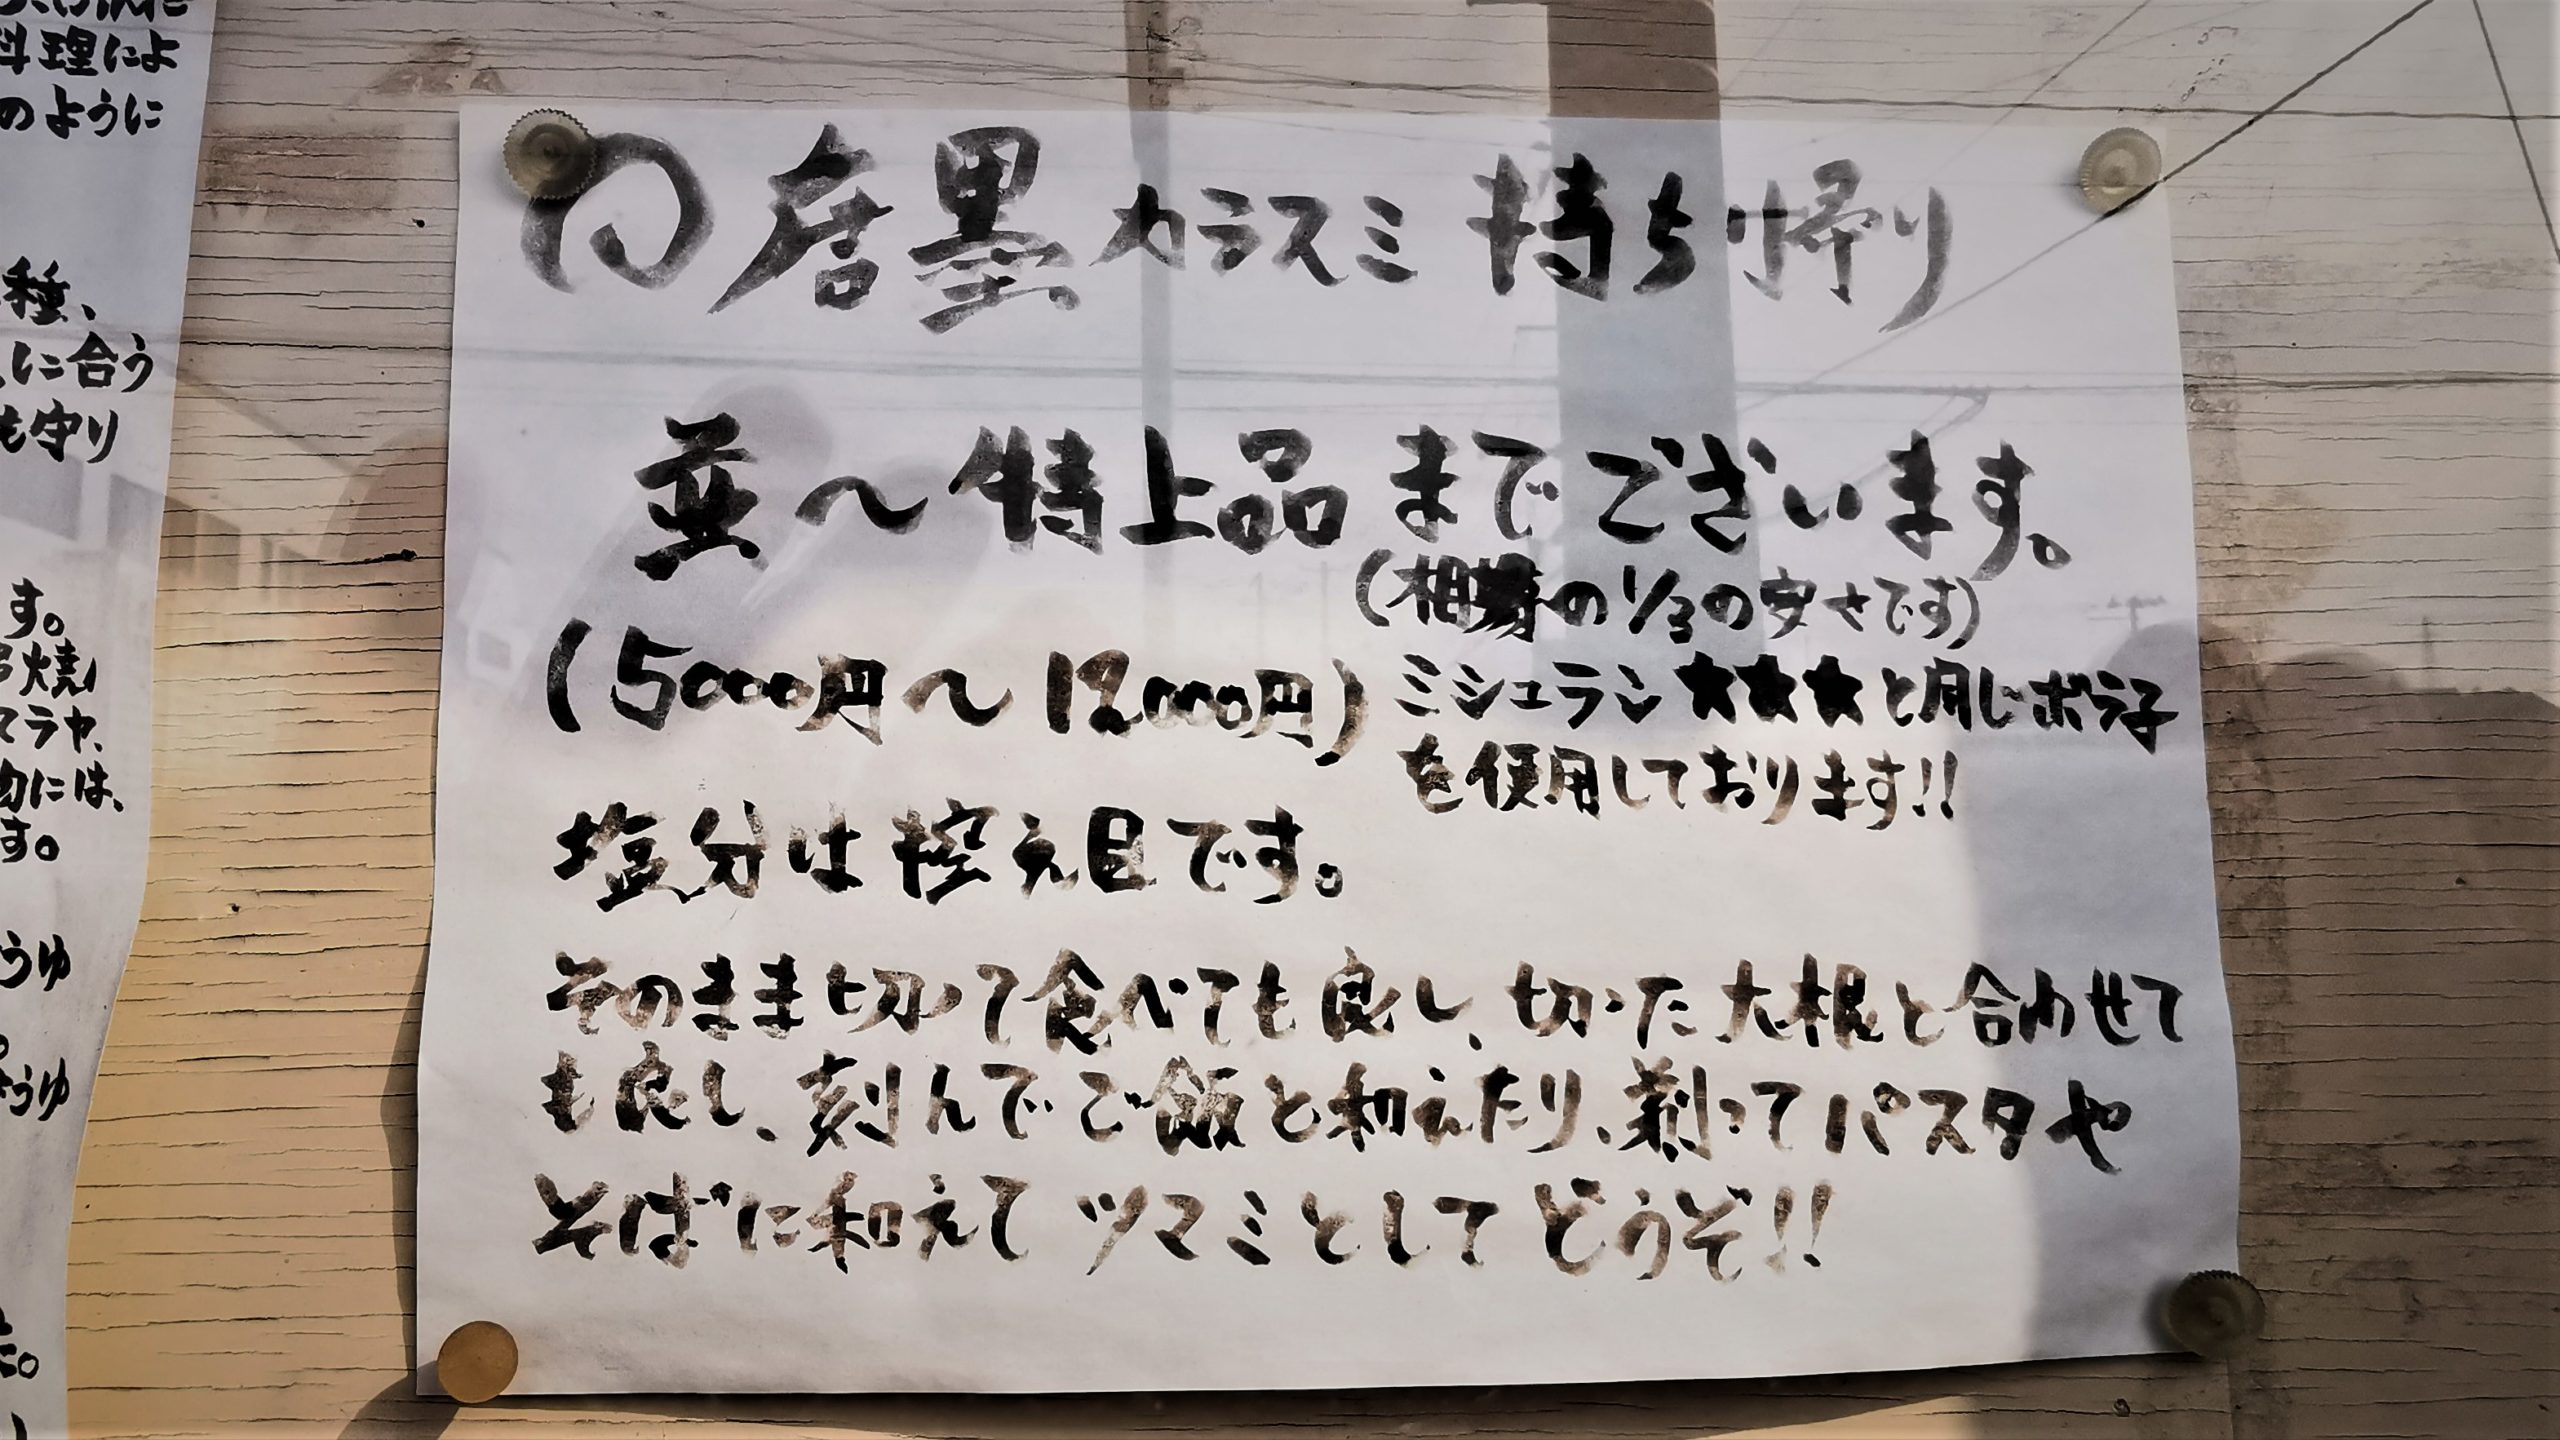 料理によ
のように
種、
に合う
も守り
す。
焼
テラヤ、
には、
す。
うゆ
うゆ
唐墨 カラスミ 持ち帰り
並〜特上品 までございます。
(相場の1/3の安さです)
(5000円〜12000円)
ミシュラン★★★と同じボラ子
を使用しております!!
塩分は控え目です。
そのまま切って食べても良し、切った大根と合わせて
も良し、刻んでご飯と和えたり、剃ってパスタや
そばに和えて ツマミとしてどうぞ!!